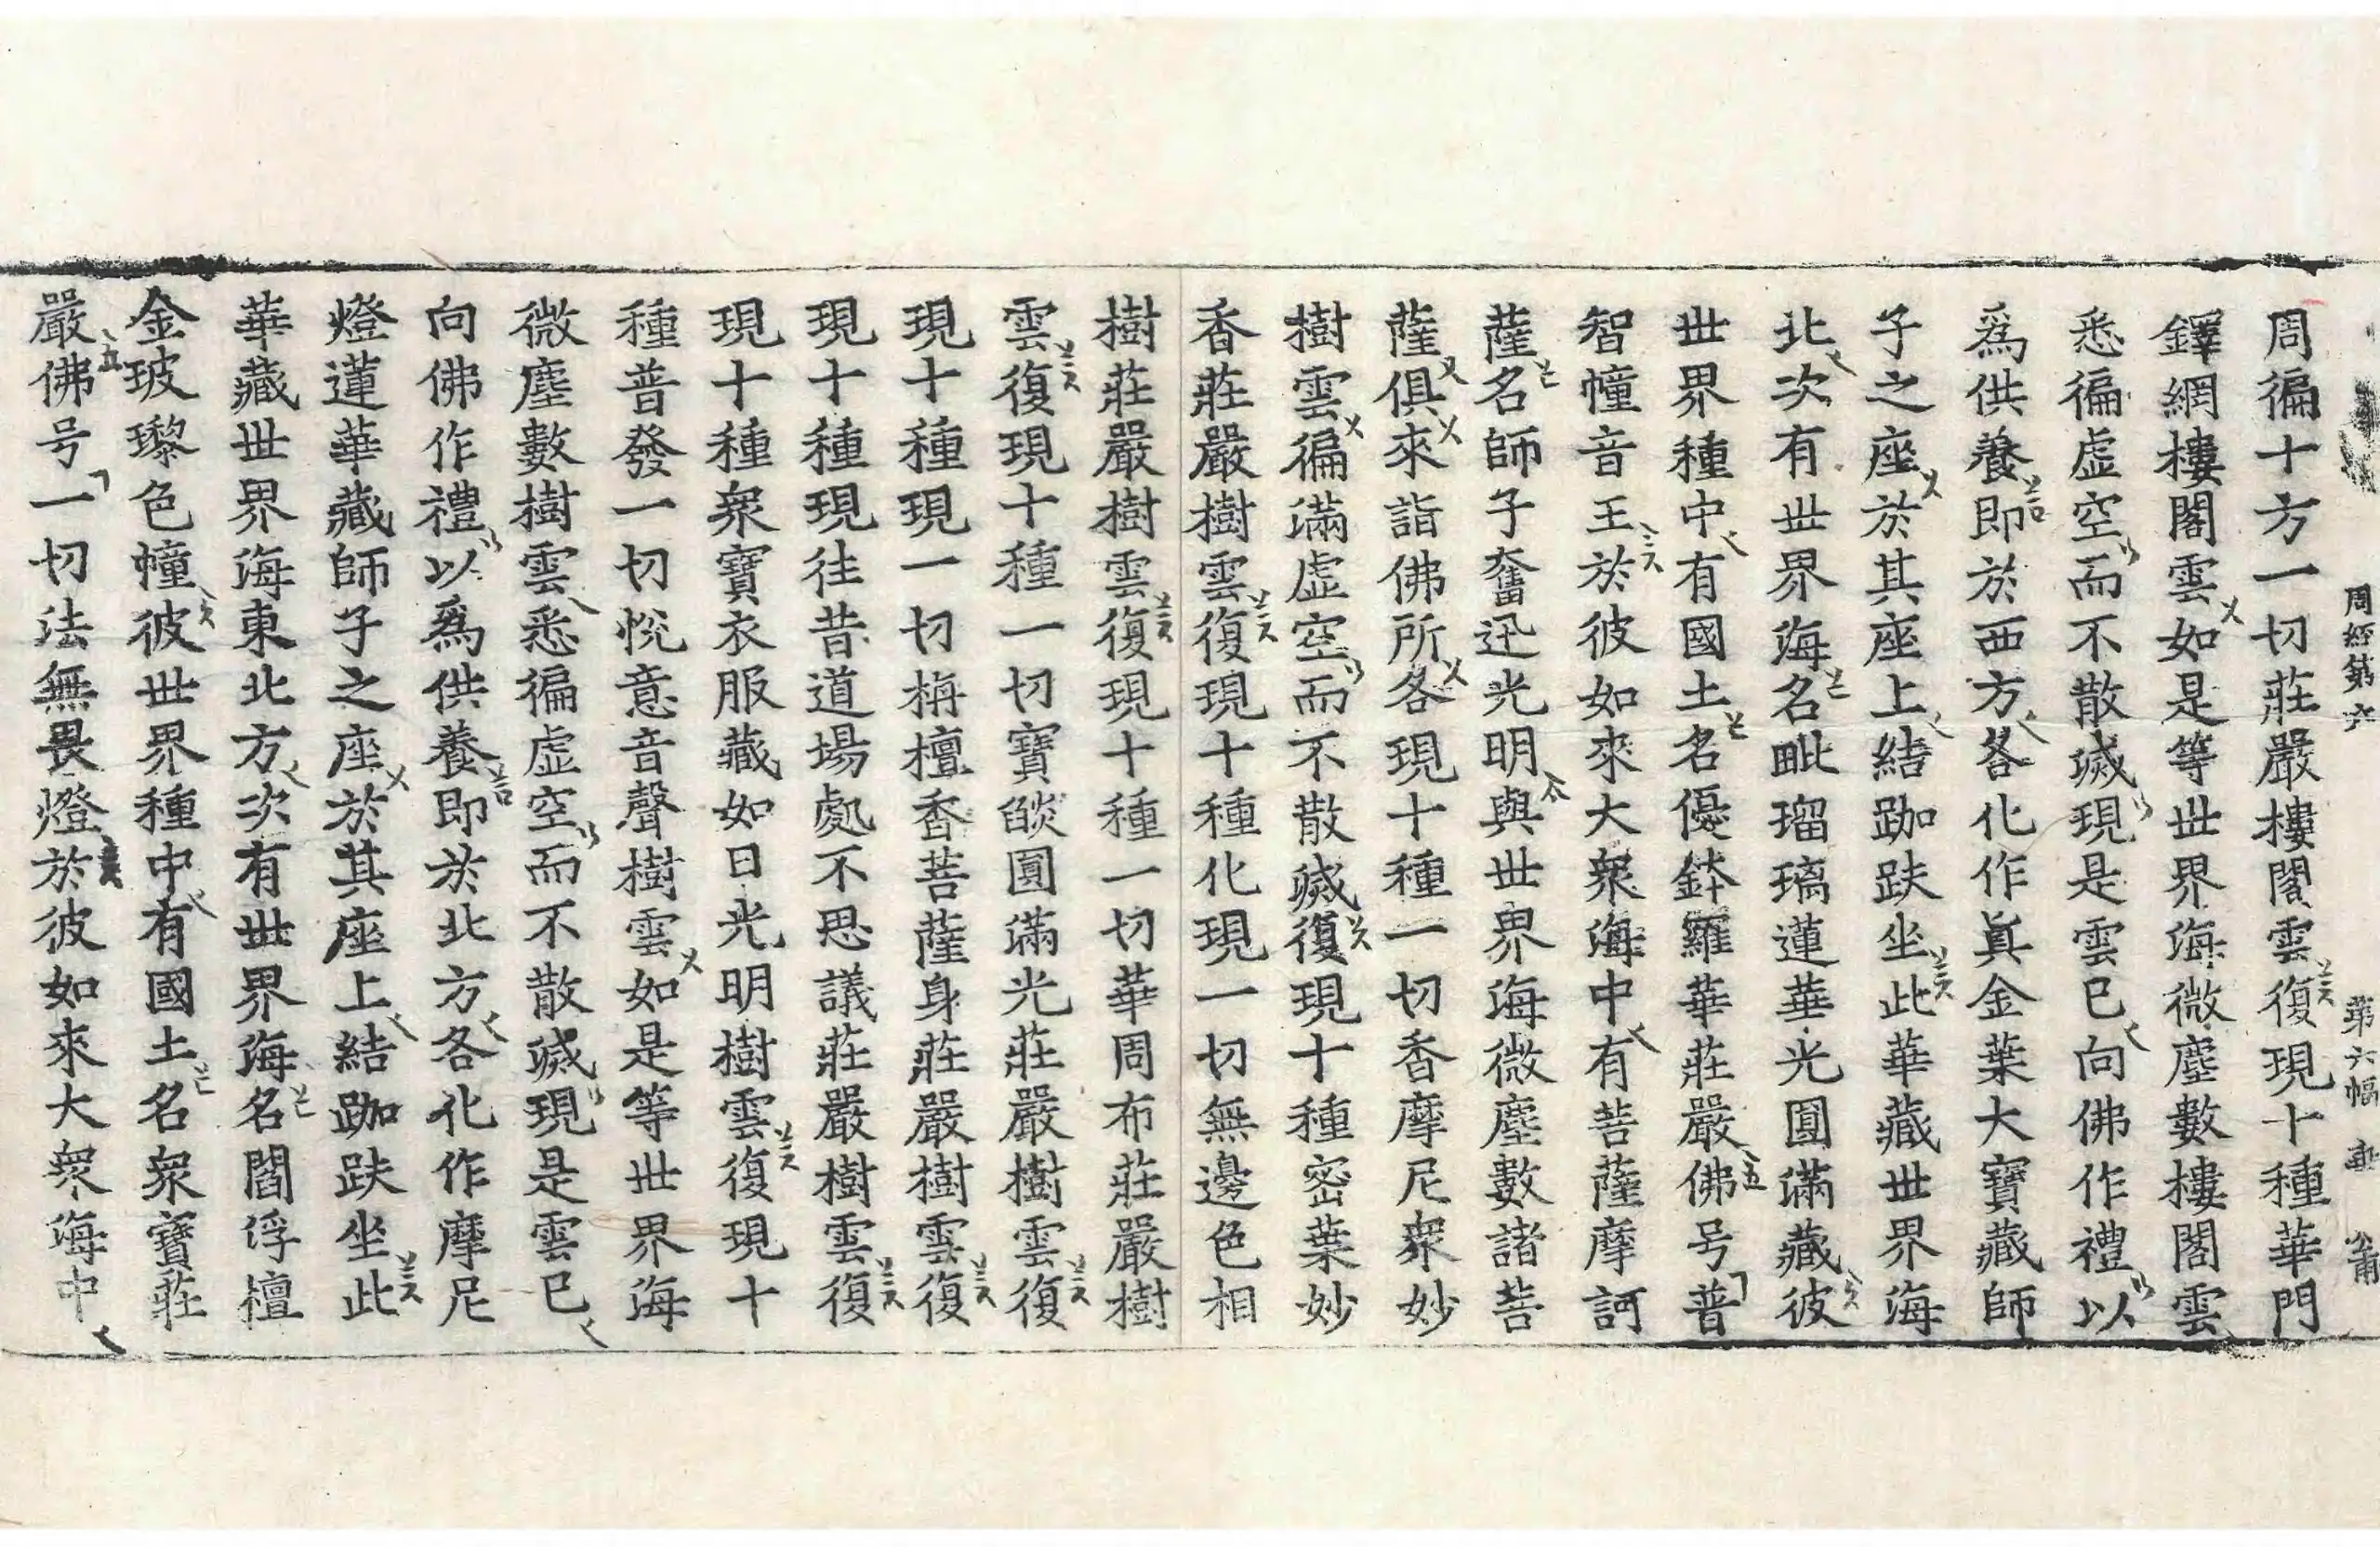 周經第六 第六幅 
周徧十方一切莊嚴樓閣雲復現十種華門
鐸網樓閣雲如是等世界海微塵數樓閣雲
悉徧虛空而不散滅現是雲已向佛作禮以
爲供養即於西方各化作眞金葉大寶藏師
子之座於其座上結跏趺坐此華藏世界海
北次有世界海名毗瑠璃蓮華光圓滿藏彼
世界種中有國土名優鉢羅華莊嚴佛号普
智幢音王於彼如來大衆海中有菩薩摩訶
薩名師子奮迅光明與世界海微塵數諸菩
薩俱來詣佛所各現十種一切香摩尼衆妙
樹雲徧滿虛空而不散滅復現十種密葉妙
香莊嚴樹雲復現十種化現一切無邊色相
樹莊嚴樹雲復現十種一切華周布莊嚴樹
雲復現十種一切寶燄圓滿光莊嚴樹雲復
現十種現一切栴檀香菩薩身莊嚴樹雲復
現十種現往昔道場處不思議莊嚴樹雲復
現十種衆寶衣服藏如日光明樹雲復現十
種普發一切悅意音聲樹雲如是等世界海
微塵數樹雲悉徧虛空而不散滅現是雲已
向佛作禮以爲供養即於北方各化作摩尼
燈蓮華藏師子之座於其座上結跏趺坐此
華藏世界海東北方次有世界海名閻浮檀
金玻瓈色幢彼世界種中有國土名衆寶莊
嚴佛号一切法無畏燈於彼如來大衆海中